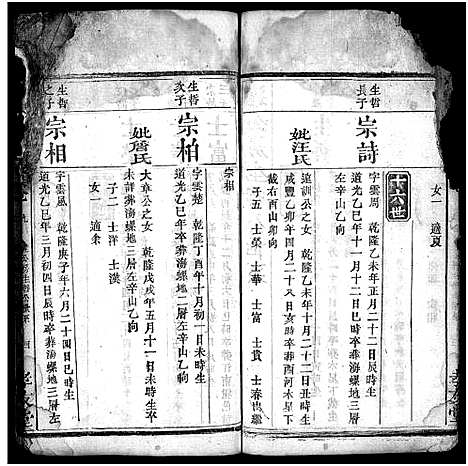 女一 適夏
十六世
生哲長子
宗詩
字雲周 乾隆乙未年正月二十二日辰時生
道光乙巳年十一月二十四日巳時卒葬海螺地三層
左辛山乙向
妣汪氏
達訓公之女 乾隆乙未年十月二十二日丑時生
咸豐乙卯年四月二十八日亥時卒葬西河水星下
截右酉山卯向
子五 士榮 士華 士富 士貴 士春出繼
宗相
生哲次子
宗柏
字雲楚 乾隆丁酉年十月初一日未時生
道光乙巳年卒葬海螺地二層左辛山乙向
妣詹氏
大章公之女 乾隆戊戌年五月十一日未時生卒
未詳葬海螺地三層左辛山乙向
子二 士洋 士漢
女一 適余
生哲之子
宗相
字雲鳳 乾隆庚子年六月二十四日巳時生
道光乙巳年三月初四日辰時卒葬海螺地三層左